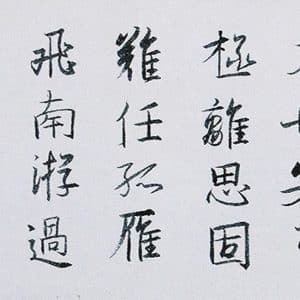 極離思固
難任孤雁
飛南游過